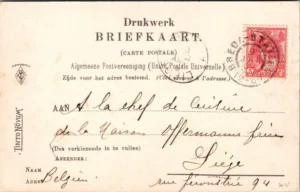 Drukwerk
BRIEFKAART.
(CARTE POSTALE)
Algemeene Postvereeniging (Union Postale Universelle)
Zijde voor het adres bestemd. (Côté réservé à l'adresse.)
AAN A la chef de Cuisine
de la Maison Offermann frères
(Dus verkiezende in te vullen)
AFZENDER: Liége
NAAM
ADRES Belgien rue 94